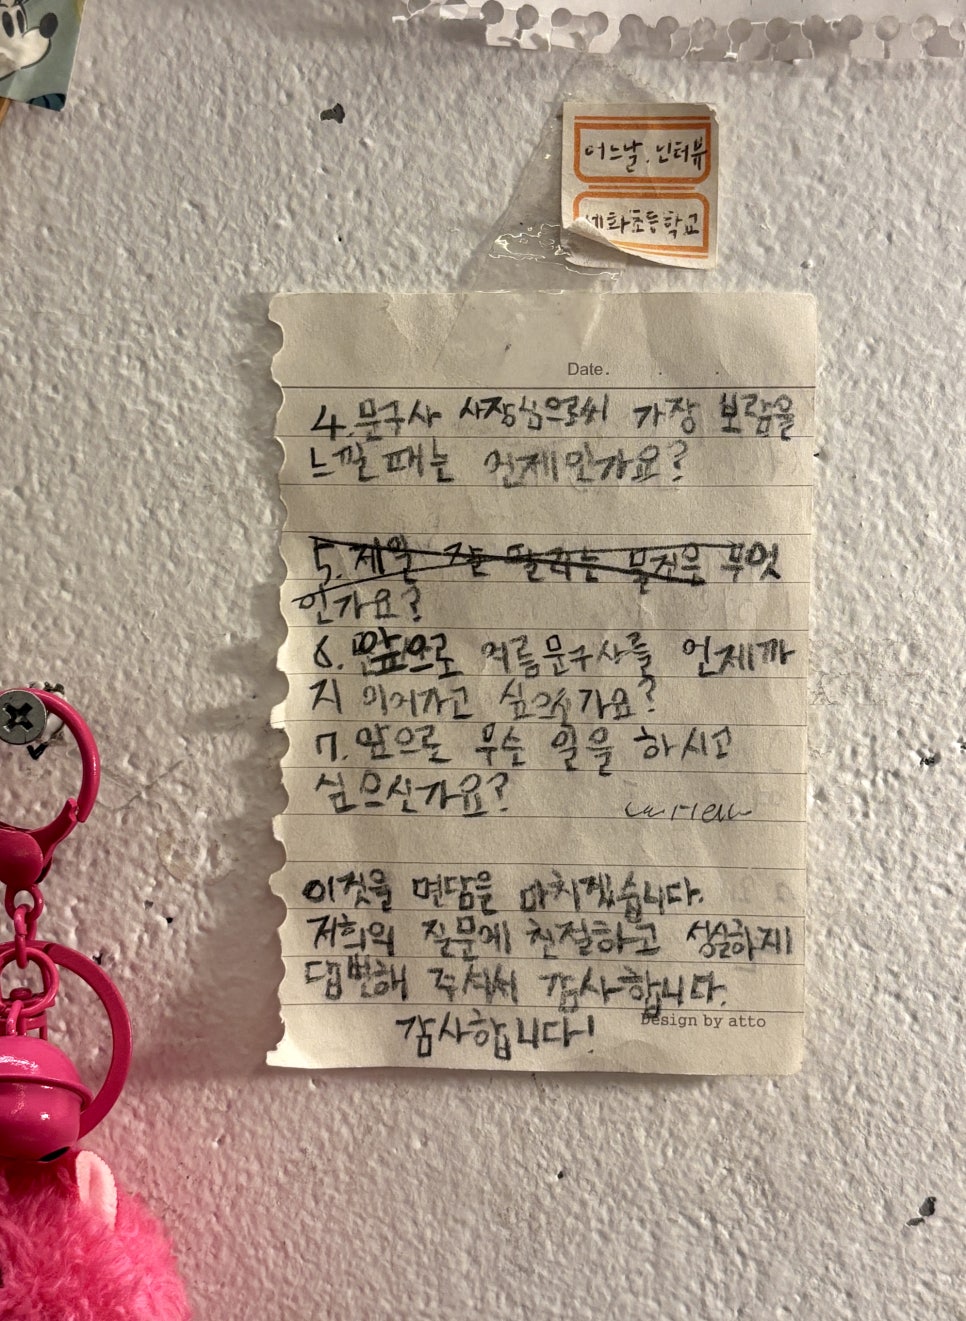 어느날. 인터뷰
세화초등학교
Date. . .
4. 문구사 사장님으로써 가장 보람을
느낄 때는 언제인가요?
5. 제일 잘 팔리는 물건은 무엇
인가요?
6. 앞으로 여름문구사를 언제까
지 이어가고 싶으신가요?
7. 앞으로 무슨 일을 하시고
싶으신가요?
이것을 면담을 마치겠습니다.
저희의 질문에 친절하고 성실하게
답변해 주셔서 감사합니다.
Design by atto
감사합니다!